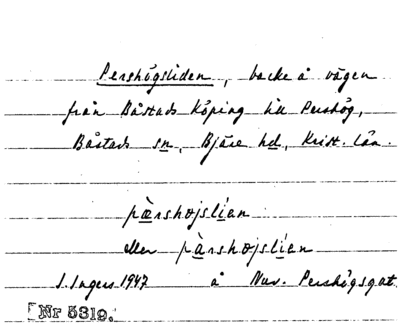 Pershögsliden, backe å vägen
från Båstads köping till Pershög,
Båstads sn, Bjäre hd, Krist. län.
pærshøjslien
eller pàrshøjslien
S. Ingers 1947 å Nuv. Pershögsgat.
[Nr 5319.